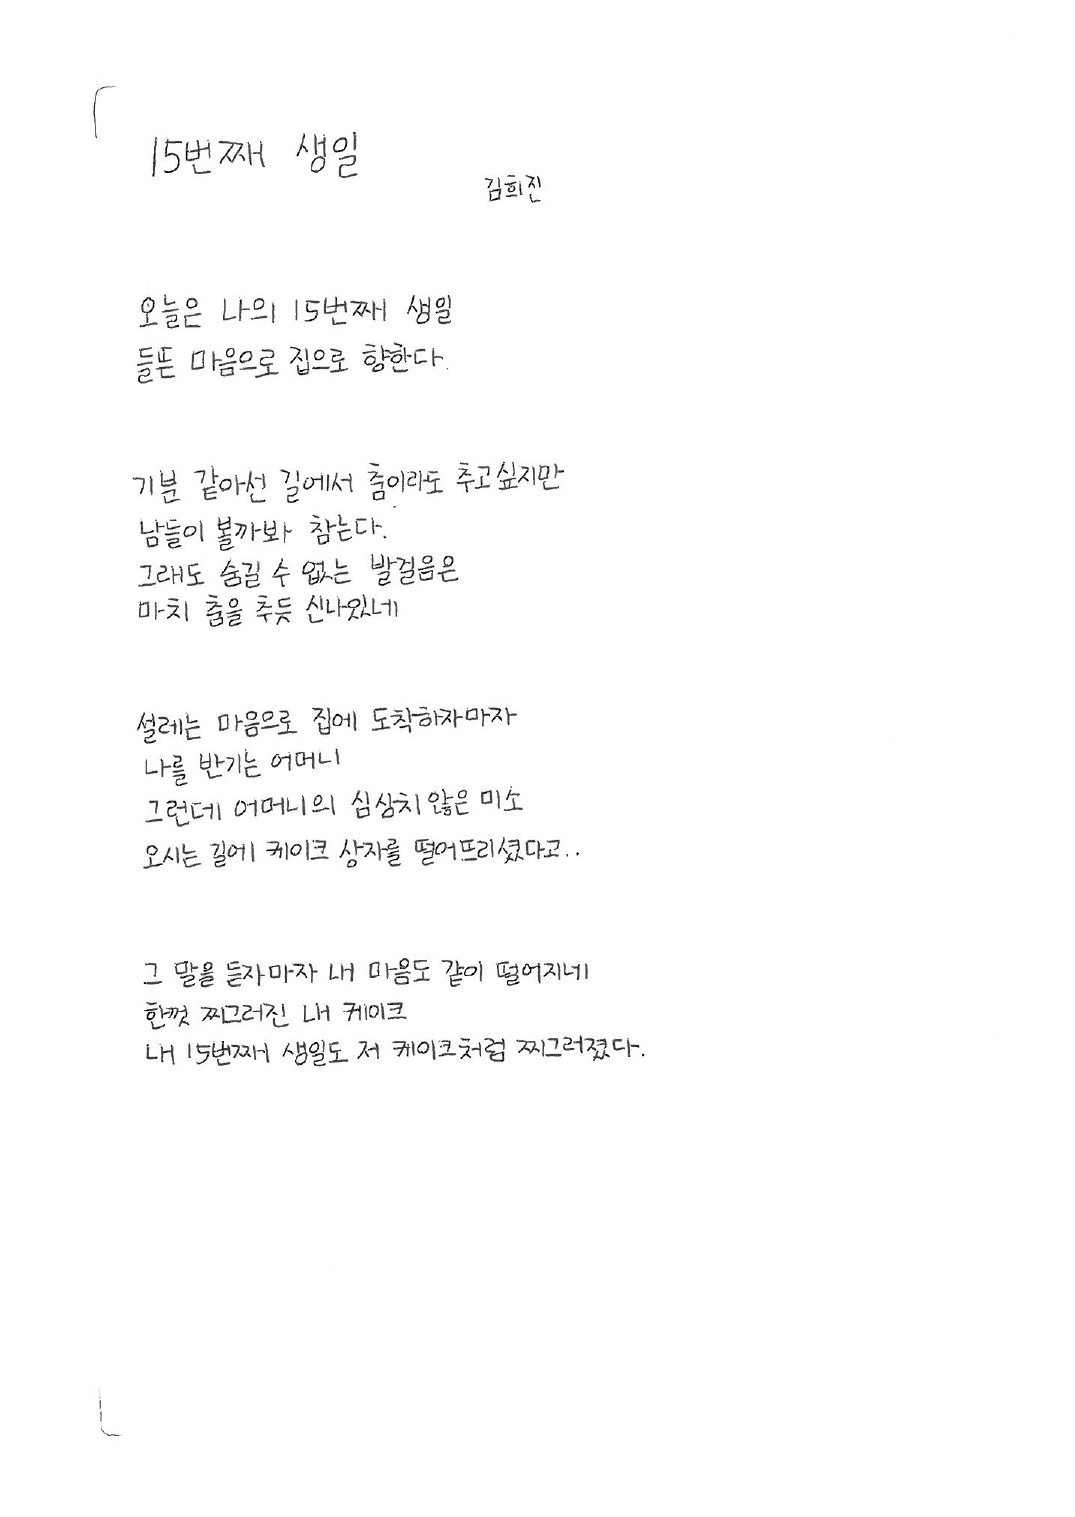 15번째 생일
김희진
오늘은 나의 15번째 생일
들뜬 마음으로 집으로 향한다.
기분 같아선 길에서 춤이라도 추고싶지만
남들이 볼까봐 참는다.
그래도 숨길 수 없는 발걸음은
마치 춤을 추듯 신나있네
설레는 마음으로 집에 도착하자마자
나를 반기는 어머니
그런데 어머니의 심상치 않은 미소
오시는 길에 케이크 상자를 떨어뜨리셨다고..
그 말을 듣자마자 내 마음도 같이 떨어지네
한껏 찌그러진 내 케이크
내 15번째 생일도 저 케이크처럼 찌그러졌다.